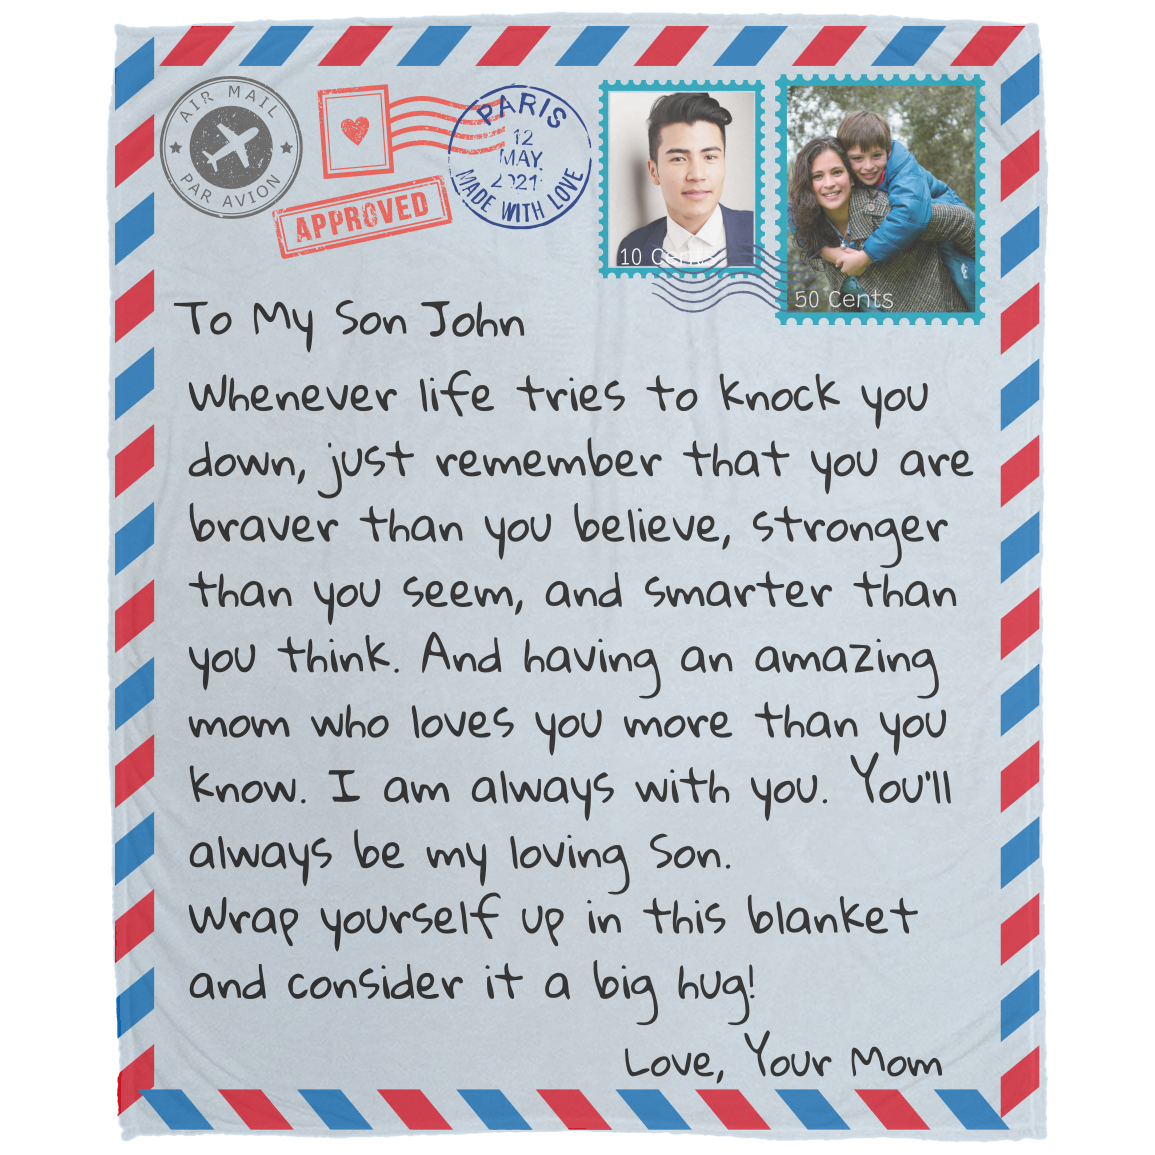 AIR MAIL
PAR AVION
APPROVED
PARIS
12
MAY
2021
MADE WITH LOVE
10 Cents
50 Cents
To My Son John
Whenever life tries to knock you
down, just remember that you are
braver than you believe, stronger
than you seem, and smarter than
you think. And having an amazing
mom who loves you more than you
know. I am always with you. You'll
always be my loving Son.
Wrap yourself up in this blanket
and consider it a big hug!
Love, Your Mom